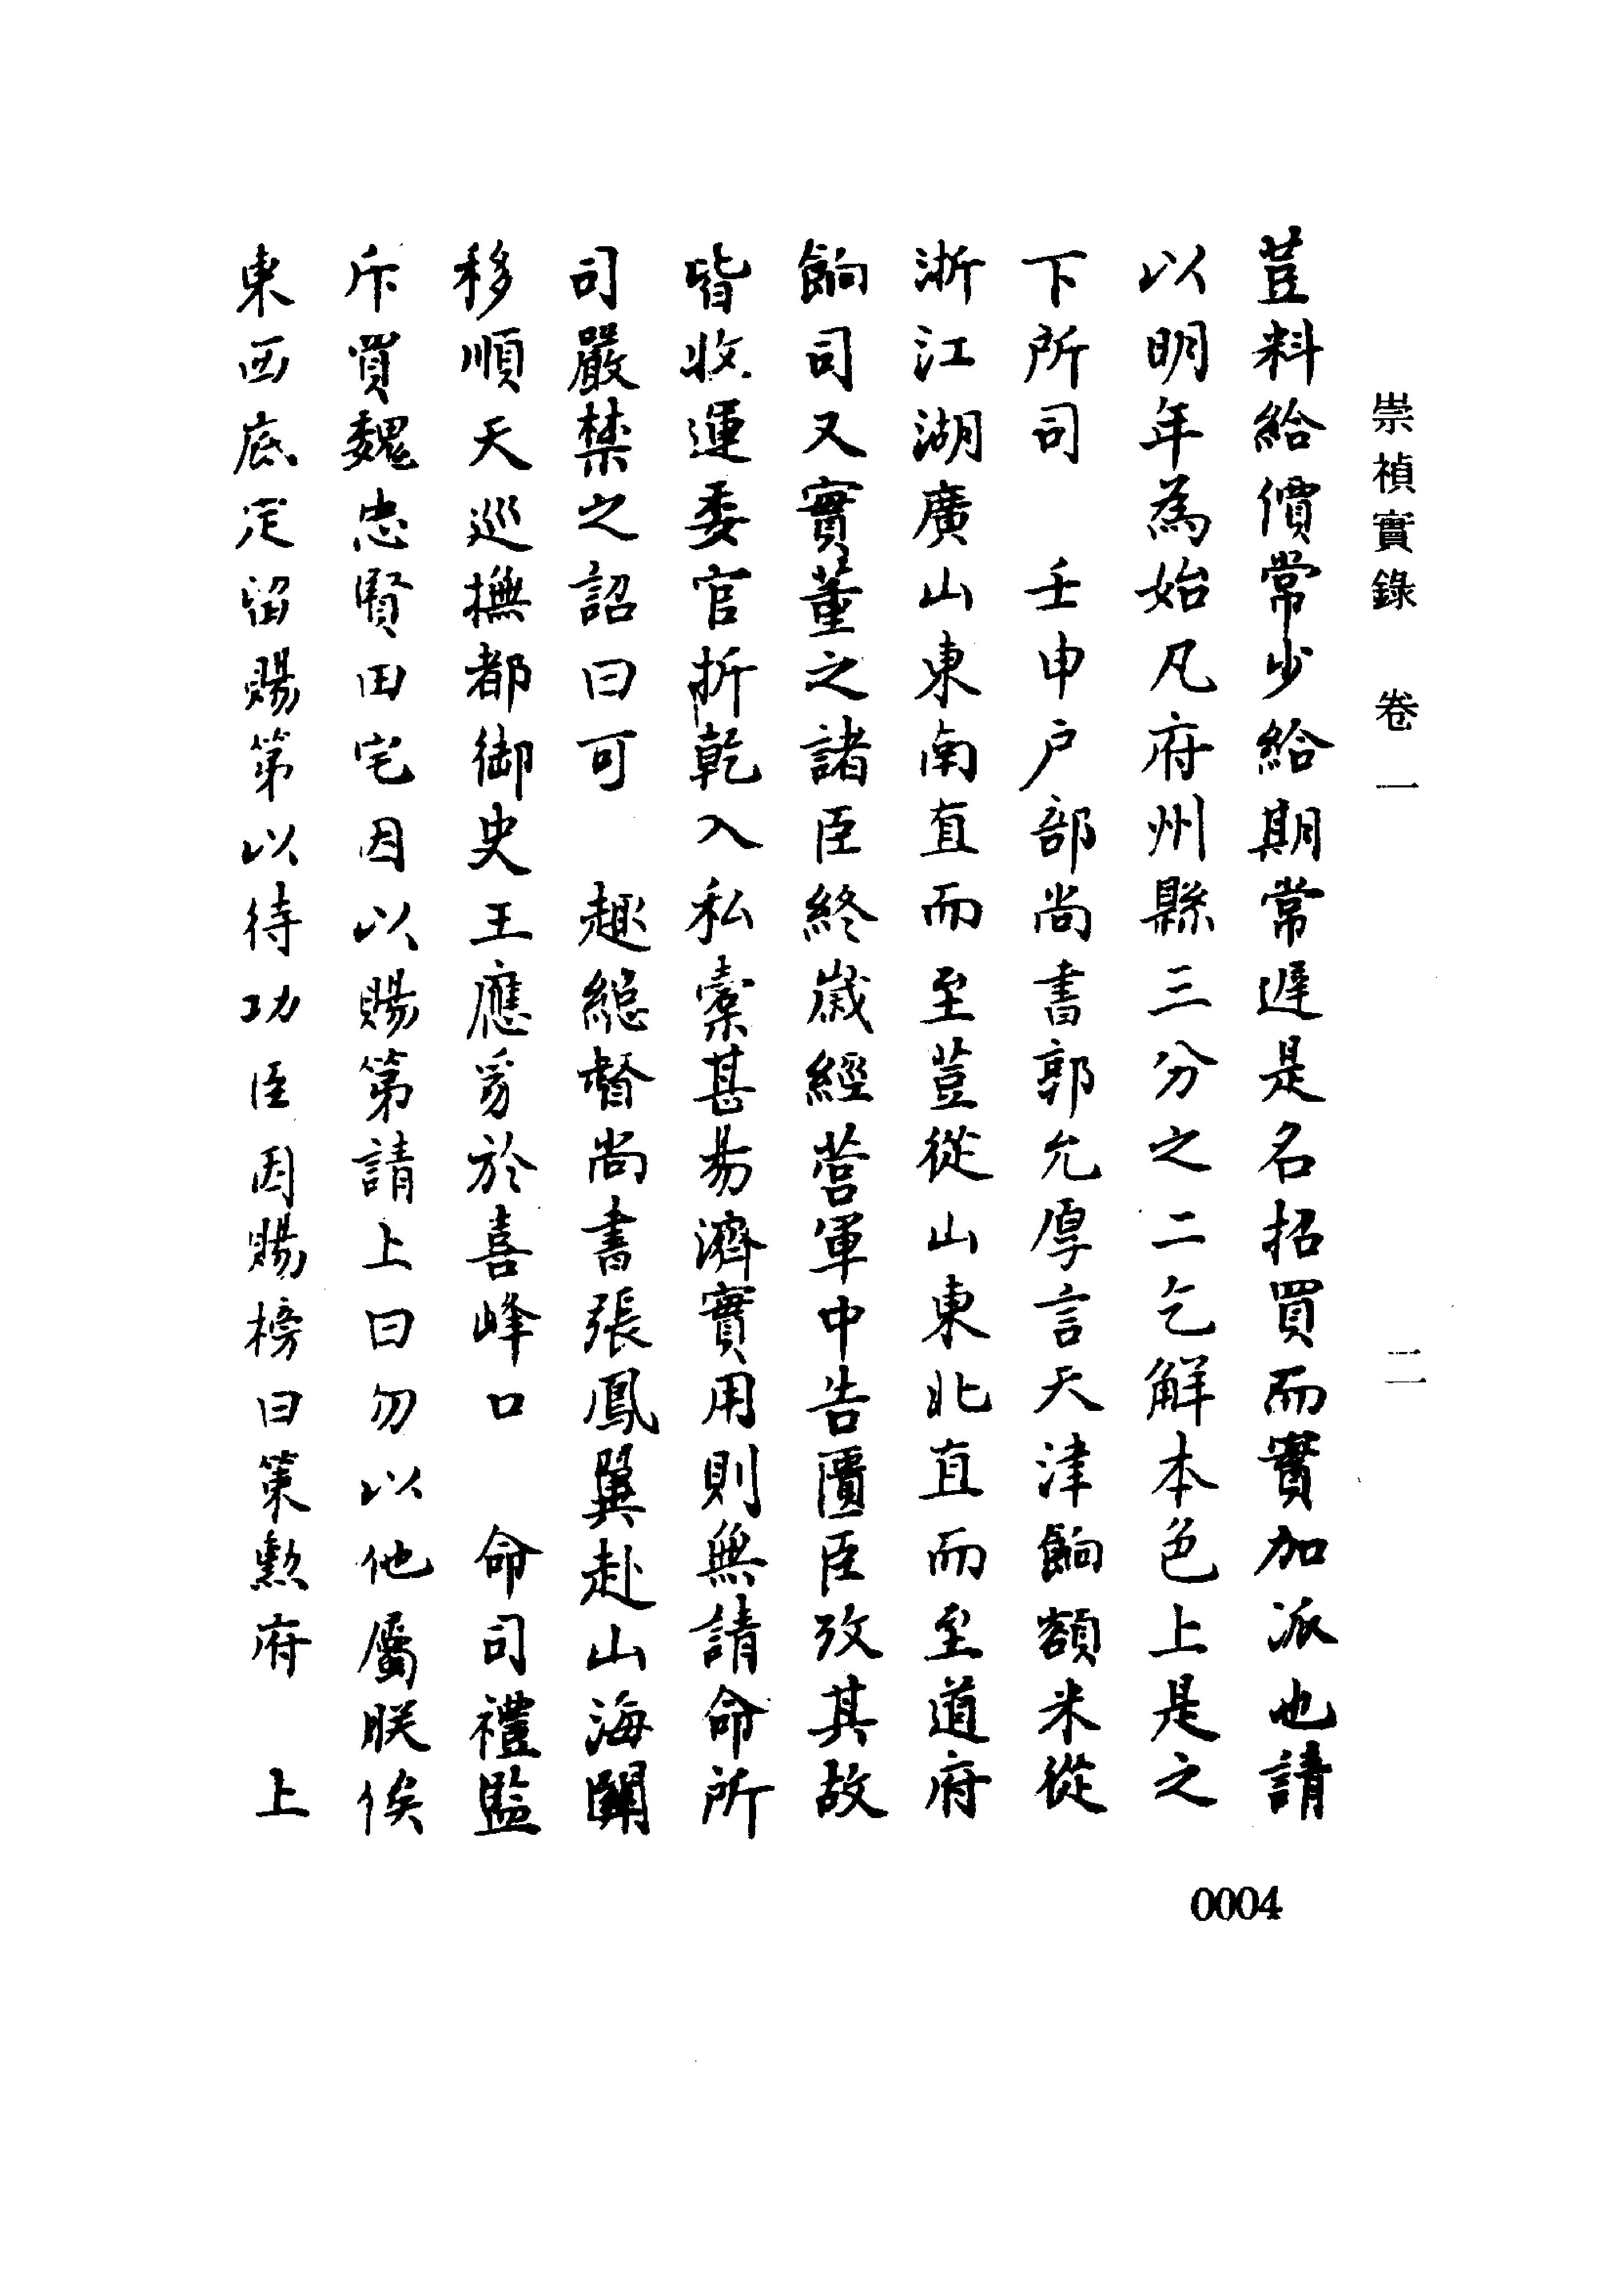 崇禎實錄 卷一 二
荳料給價常少給期常遲是名招買而實加派也請
以明年為始凡府州縣三分之二乞解本色上是之
下所司 壬申户部尚書郭允厚言天津餉額米從
浙江湖廣山東南直而至荳從山東北直而至道府
餉司又實董之諸臣終歳經營軍中告匱臣攷其故
皆收運委官折乾入私橐甚易濟實用則無請命所
司嚴禁之詔曰可 趣總督尚書張鳳翼赴山海關
移順天巡撫都御史王應豸於喜峰口 命司禮監
斥買魏忠賢田宅因以賜第請上曰勿以他屬朕俟
東西底定留賜第以待功臣因賜榜曰策勲府 上
0004